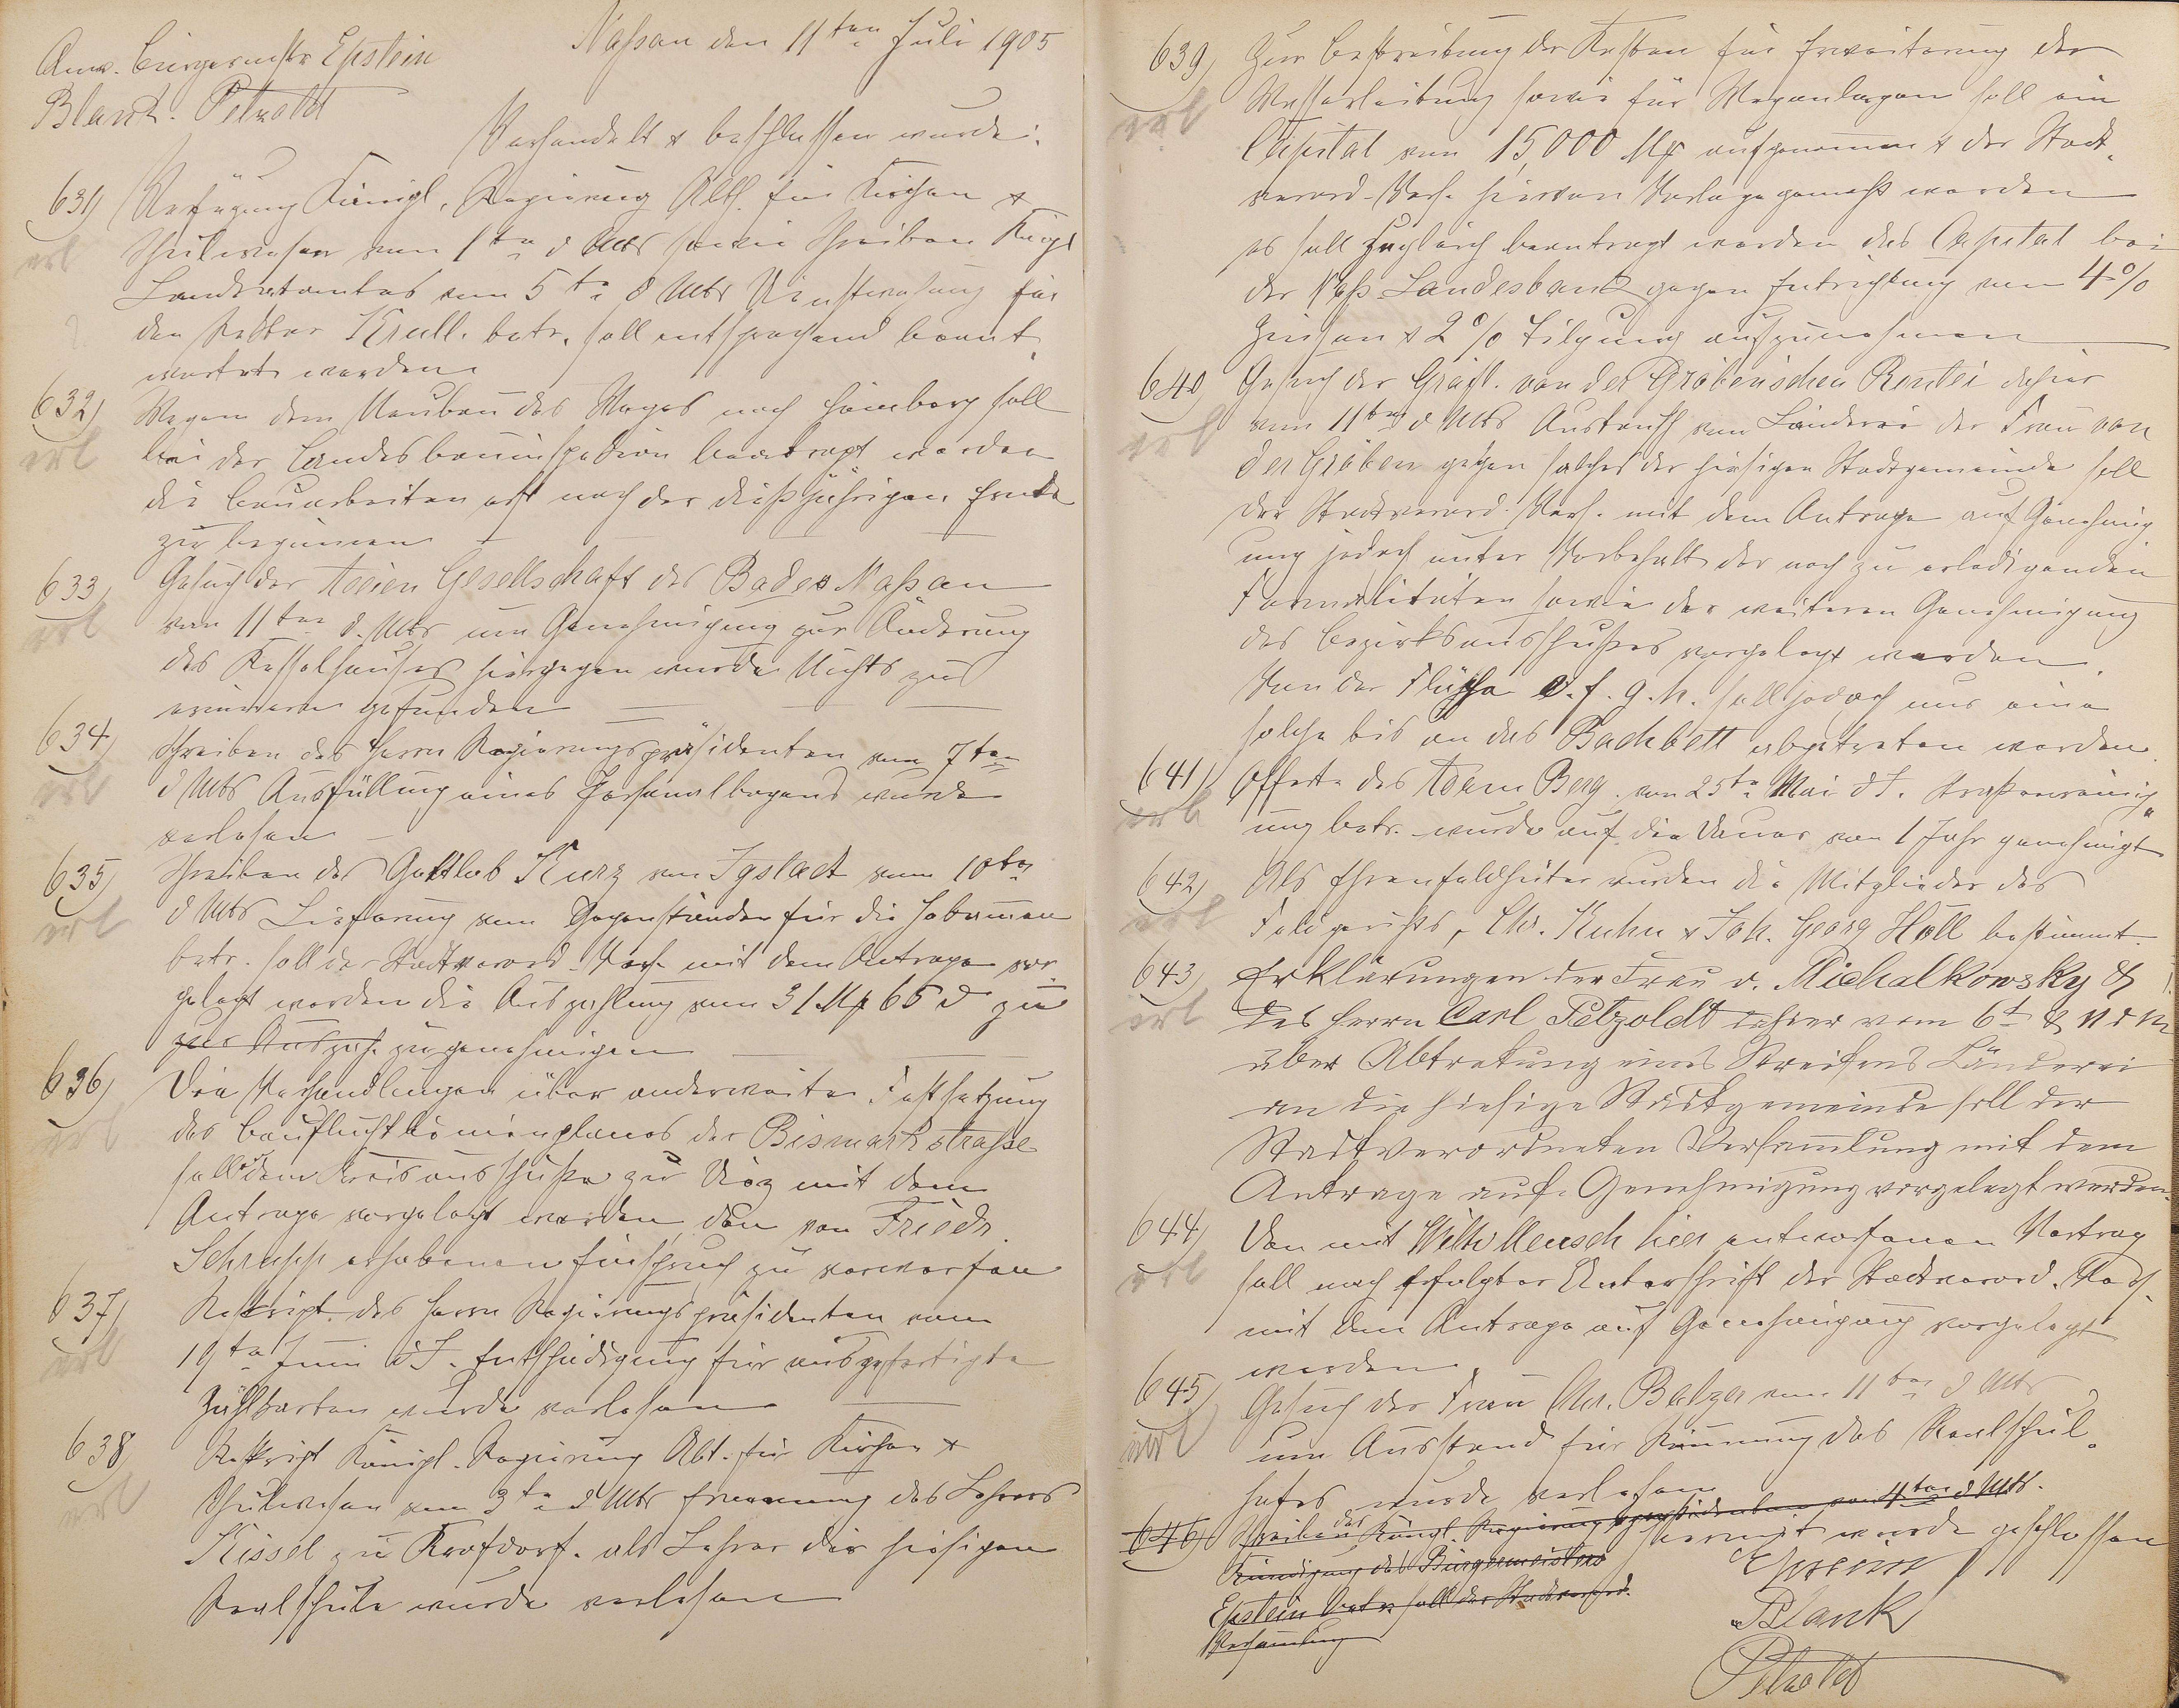 Naßau den 11ten Juli 1905
Anw. Bürgermstr Epstein
Blank. Petzoldt
Verhandelt & beschlossen wurde:
631) Verfügung Königl. Regierung Abth. für Kirchen &
erl
Schulwesen vom 1ten d Mts sowie Schreiben Kngl
Landratamtes vom 5ten d Mts Dienstwohnung für
den Rektor Krull. betr. soll entsprechend beant„
wortet werden
632) Wegen dem Neubau des Weges nach Hömberg soll
erl
bei der Landesbauinspektion beantragt werden
die Bauarbeiten erst nach der dießjährigen Ernte
zu beginnen
633) Gesuch der Actien Gesellschaft des Bades Naßau
erl
vom 11ten d. Mts um Genehmigung zur Änderung
des Kesselhauses hiergegen wurde Nichts zu
erinnern gefunden
634) Schreiben des Herrn Regierungspräsidenten vom 7ten
erl
d Mts Ausfüllung eines Personalbogens wurde
verlesen
635) Schreiben des Gottlob Kurz von Igstadt vom 10ten
erl
d Mts Lieferung von Gegenständen für die Hebammen
betr. soll der Stadtverord. Vers. mit dem Antrage vor„
gelegt werden die Auszahlung von 31 Mk 65 d zu
zur Auszah. zu genehmigen
636) Die Verhandlungen über anderweite Festsetzung
erl
des Baufluchtlinienplanes der Bismarkstraße
soll dem Kreisausschuße zu Diez mit dem
Antrage vorgelegt werden, den von Friedr.
Schrupp erhobenen Einspruch zu verwerfen
637) Reskript des Herrn Regierungspräsidenten vom
erl
19ten Juni d J. Entschädigung für ausgefertigte
Zählkarten wurde verlesen
638) Reskript Königl. Regierung Abt. für Kirchen &
erl
Schulwesen vom 3ten d Mts Ernennung des Lehrers
Kissel zu Krofdorf. als Lehrer der hiesigen
Realschule wurde verlesen
639) Zur Bestreitung der Kosten für Erweiterung der
erl
Wasserleitung sowie für Weganlagen soll ein
Capital von 15,000 Mk aufgenommen & der Stadt„
verord. Vers. hiervon Vorlage gemacht werden
es soll zugleich beantragt werden das Capital bei
der Naß. Landesbank gegen Entrichtung von 4 %
Zinsen & 2 % Tilgung aufzunehmen
640) Gesuch der Gräfl. von der Gröbenschen Rentei dahier
erl
vom 11ten d Mts Austausch von Länderei der Frau von
der Gröben gegen solches der hiesigen Stadtgemeinde soll
der Stadtverord. Vers. mit dem Antrage auf Genehmig„
ung jedoch unter Vorbehalt der noch zu erledigenden
Formalitäten sowie der weiteren Genehmigung
des Bezirksausschußes vorgelegt werden.
Von der Fläche e. f. g. h. soll jedoch nur eine
solche bis an das Bachbett abgetreten werden.
641) Offerte des Adam Berg. vom 25ten Mai d J. Straßenreinig„
erl
ung betr. wurde auf die Dauer von 1 Jahr genehmigt
642) Als Ehrenfeldhüter wurden die Mitglieder des
erl
Feldgerichts, Chr. Kuhn & Joh. Georg Höll bestimmt.
643) Erklärungen der Frau v. Michalkowsky &
erl
des Herrn Carl Petzoldt dahier vom 6t & 11 d M
über Abtretung eines Streifens Länderei
an die hiesige Stadtgemeinde soll der
Stadtverordneten Versammlung mit dem
Antrage auf Genehmigung vorgelegt werden.
644) Den mit Wilh. Mensch hier entworfenen Vertrag
erl
soll nach erfolgter Unterschrift der Stadtverord. Vers.
mit dem Antrage auf Genehmigung vorgelegt
werden
645) Gesuch der Frau Chr. Balzer vom 11ten d Mts
erl
um Ausstand für Räumung des Realschul„
hofes wurde verlesen
646) Schreiben des Köngl. Regierungspräsidenten vom 4ten d Mts.
Kündigung des Bürgermeisters
Epstein betr. soll der Stadtverord.
Versammlung
Hiermit wurde geschlossen
Epstein
Blank
Petzoldt